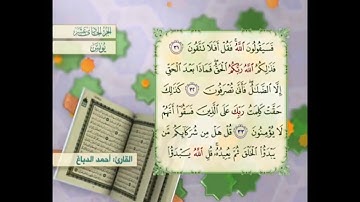 الجزء الحادي عشر
يونس
فَسَيَقُولُونَ اللَّهُ فَقُلْ أَفَلَا تَتَّقُونَ ٣١
فَذَلِكُمُ اللَّهُ رَبُّكُمُ الْحَقُّ فَمَاذَا بَعْدَ الْحَقِّ
إِلَّا الضَّلَالُ فَأَنَّى تُصْرَفُونَ ٣٢ كَذَلِكَ
حَقَّتْ كَلِمَتُ رَبِّكَ عَلَى الَّذِينَ فَسَقُوا أَنَّهُمْ
لَا يُؤْمِنُونَ ٣٣ قُلْ هَلْ مِنْ شُرَكَائِكُمْ مَنْ
يَبْدَؤُا الْخَلْقَ ثُمَّ يُعِيدُهُ قُلِ اللَّهُ يَبْدَؤُا
القارئ: أحمد الدباغ